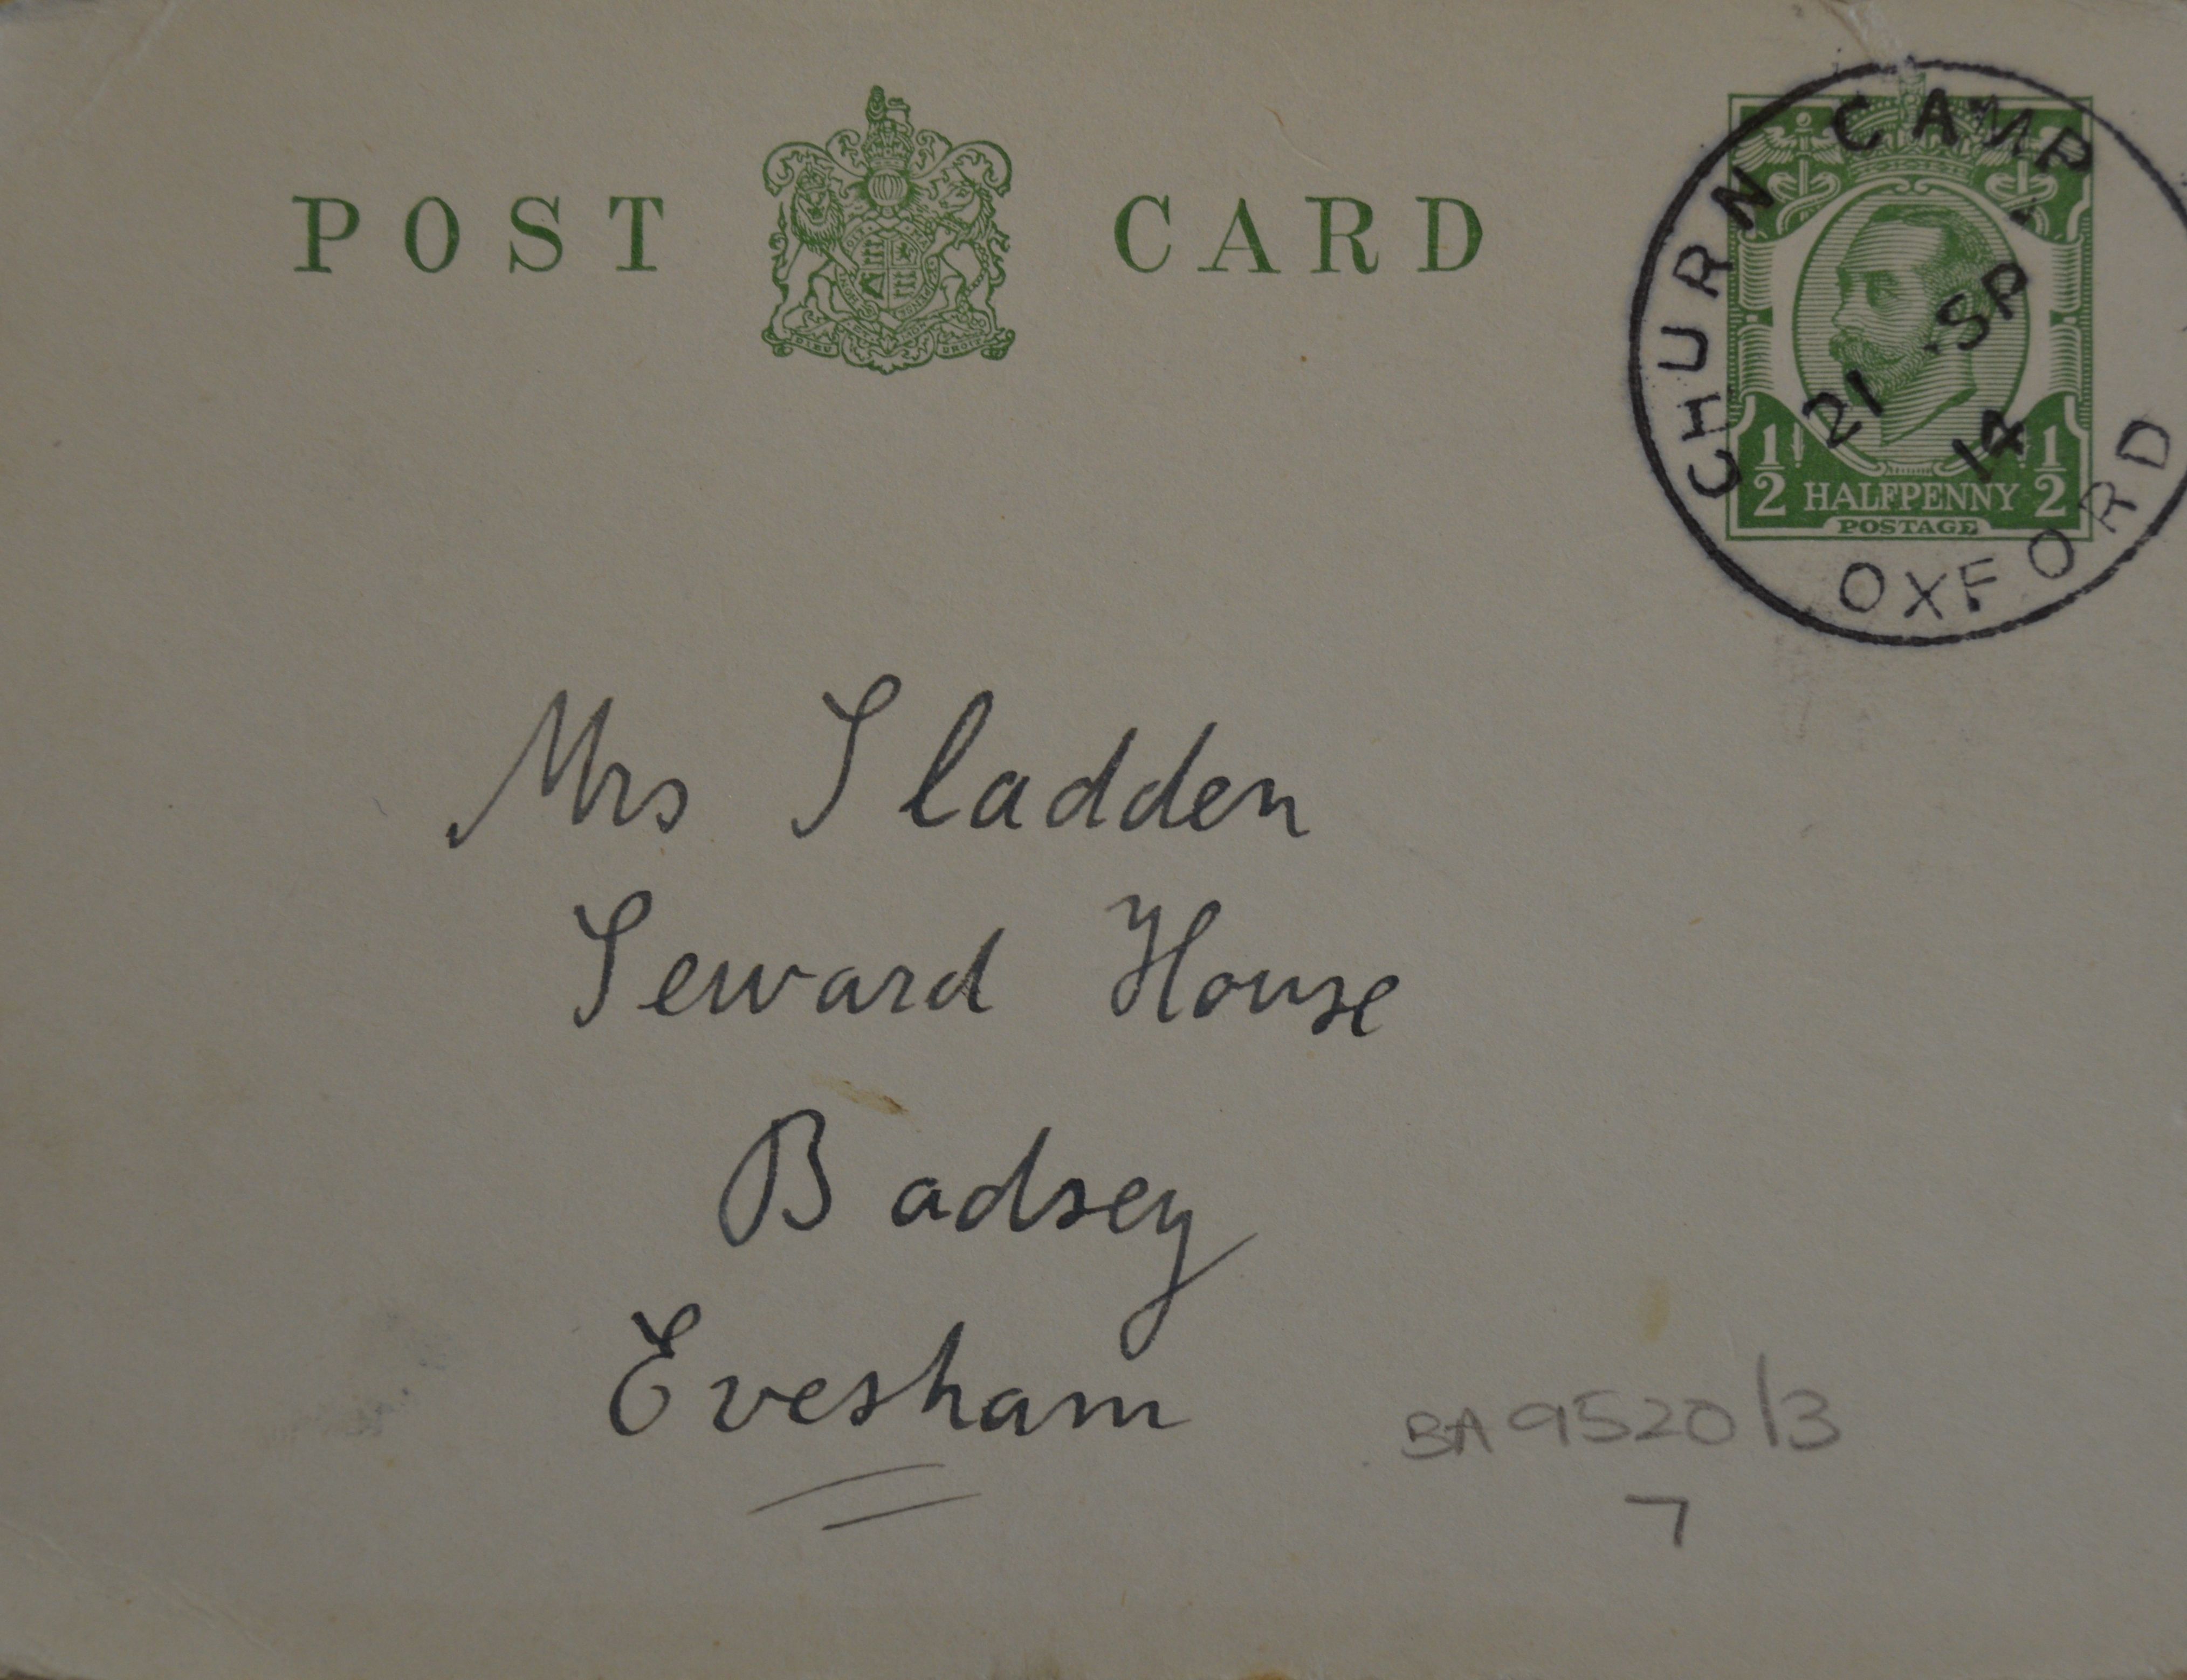 POST CARD
CHURN CAMP
21 SP 14
OXFORD
1/2 HALFPENNY 1/2
POSTAGE
Mrs Sladden
Seward House
Badsey
Evesham
BA 9520/3
7